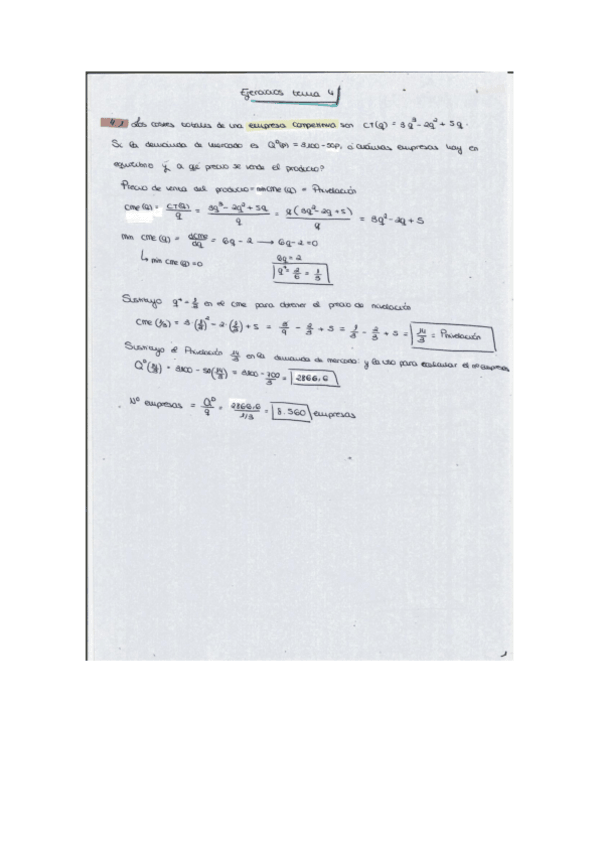 Ejercicios tema 4
4.1 Los costes totales de una empresa competitiva son CT(q) = 3q³ - 2q² + 5q.
Si la demanda de mercado es Qᴰ(p) = 3100 - 50p, ¿cuántas empresas hay en
equilibrio y a qué precio se vende el producto?
Precio de venta del producto = min cme (q) = Pnivelación
cme (q) = CT(q)/q = 3q³ - 2q² + 5q/q = q(3q² - 2q + 5)/q = 3q² - 2q + 5
min cme (q) = dcme/dq = 6q - 2 → 6q - 2 = 0
↳ min cme (q) = 0 6q = 2
q* = 2/6 = 1/3
Sustituyo q* = 1/3 en el cme para obtener el precio de nivelación
cme (1/3) = 3·(1/3)² - 2·(1/3) + 5 = 3/9 - 2/3 + 5 = 1/3 - 2/3 + 5 = 14/3 = Pnivelación
Sustituyo el Pnivelación 14/3 en la demanda de mercado y la uso para calcular el nº empresas
Qᴰ(14/3) = 3100 - 50(14/3) = 3100 - 700/3 = 2866,6
Nº empresas = Qᴰ/q = 2866,6/1/3 = 8.560 empresas
1